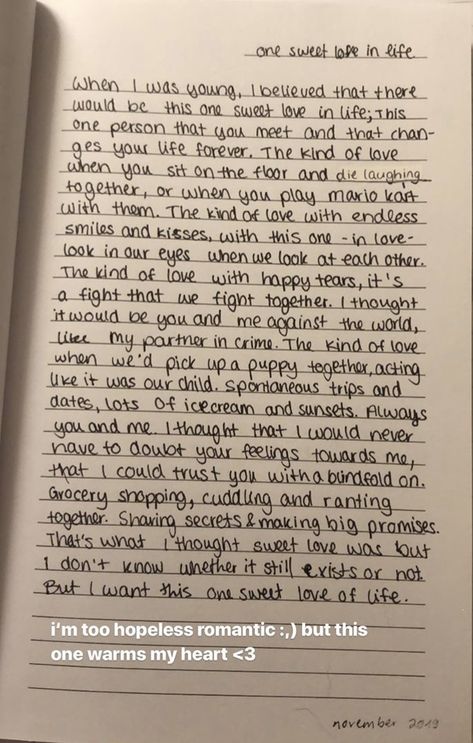 one sweet love in life
When I was young, I believed that there
would be this one sweet love in life; This
one person that you meet and that chan-
ges your life forever. The kind of love
when you sit on the floor and die laughing
together, or when you play mario kart
with them. The kind of love with endless
smiles and kisses, with this one - in love -
look in our eyes when we look at each other.
The kind of love with happy tears, it's
a fight that we fight together. I thought
it would be you and me against the world,
like my partner in crime. The kind of love
when we'd pick up a puppy together, acting
like it was our child. Spontaneous trips and
dates, lots of icecream and sunsets. Always
you and me. I thought that I would never
have to doubt your feelings towards me,
that I could trust you with a blindfold on.
Grocery shopping, cuddling and ranting
together. Sharing secrets & making big promises.
That's what I thought sweet love was but
I don't know whether it still exists or not.
But I want this one sweet love of life.
i'm too hopeless romantic :,) but this
one warms my heart <3
november 2019